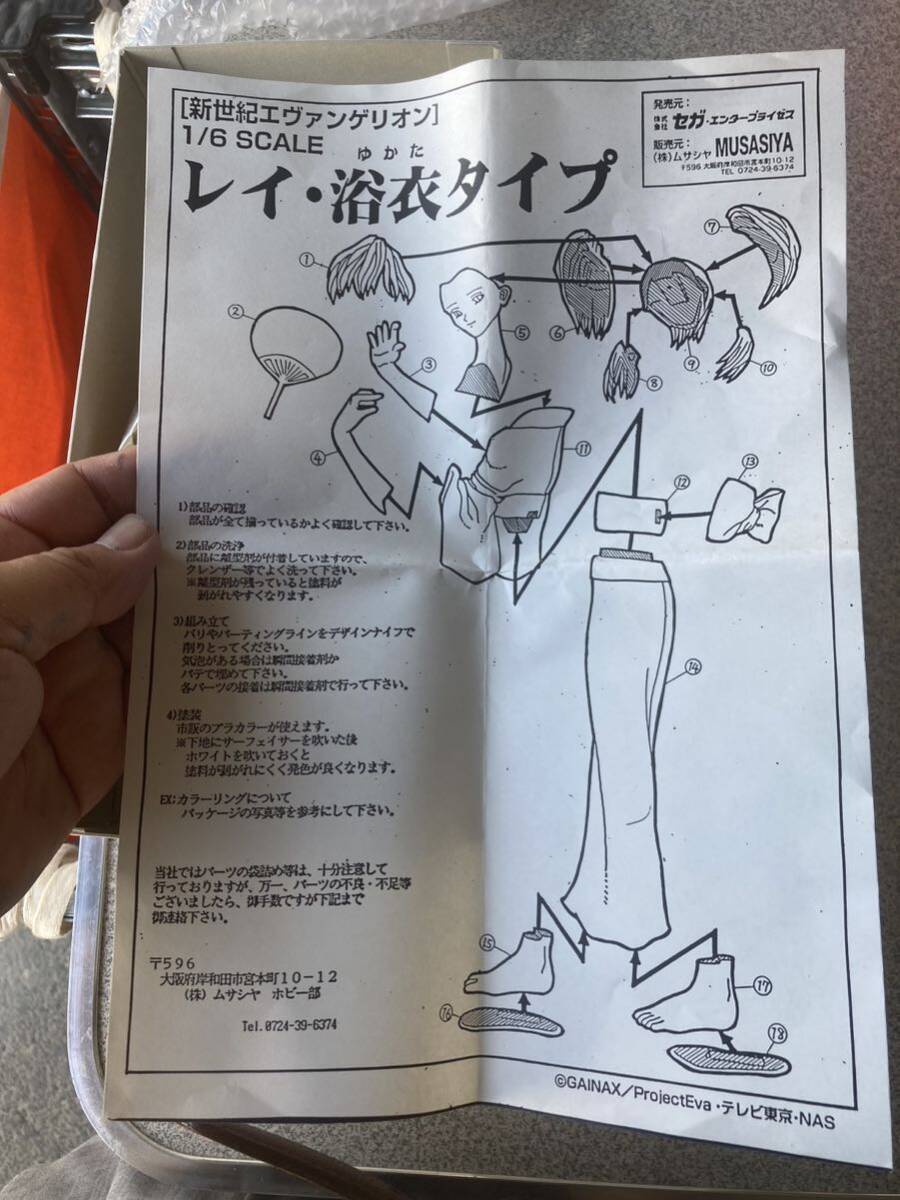 [新世紀エヴァンゲリオン]
1/6 SCALE
ゆかた
レイ・浴衣タイプ
発売元：
株式会社 セガ・エンタープライゼス
販売元：
(株)ムサシヤ MUSASIYA
〒596 大阪府岸和田市宮本町10-12
TEL 0724-39-6374
①
②
③
④
⑤
⑥
⑦
⑧
⑨
⑩
⑪
⑫
⑬
⑭
⑮
⑯
⑰
⑱
1)部品の確認
部品が全て揃っているかよく確認して下さい。
2)部品の洗浄
部品に離型剤が付着していますので、
クレンザー等でよく洗って下さい。
※離型剤が残っていると塗料が
剥がれやすくなります。
3)組み立て
バリやパーティングラインをデザインナイフで
削りとってください。
気泡がある場合は瞬間接着剤か
パテで埋めて下さい。
各パーツの接着は瞬間接着剤で行って下さい。
4)塗装
市販のプラカラーが使えます。
※下地にサーフェイサーを吹いた後
ホワイトを吹いておくと
塗料が剥がれにくく発色が良くなります。
EX:カラーリングについて
パッケージの写真等を参考にして下さい。
当社ではパーツの袋詰め等は、十分注意して
行っておりますが、万一、パーツの不良・不足等
ございましたら、御手数ですが下記まで
御連絡下さい。
〒596
大阪府岸和田市宮本町10-12
(株)ムサシヤ ホビー部
Tel.0724-39-6374
©GAINAX/ProjectEva・テレビ東京・NAS